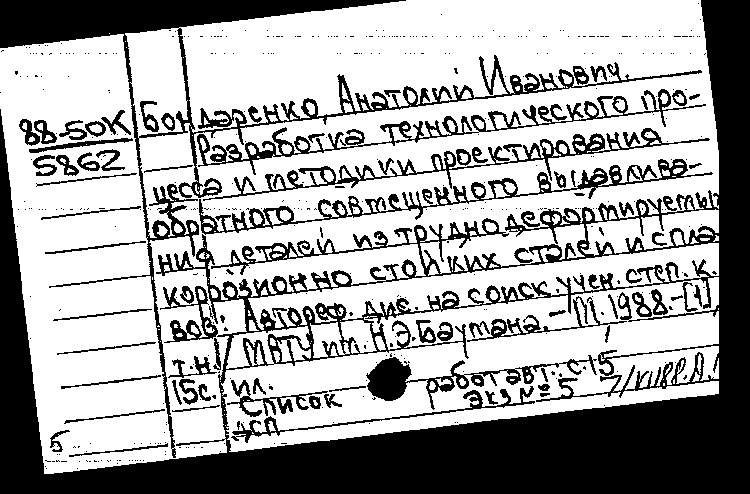 88-50К Бондаренко, Анатолий Иванович.
5862 Разработка технологического про-
цесса и методики проектирования
обратного совмещенного выдавлива-
ния деталей из труднодеформируемы
коррозионно стойких сталей и спла
вов: Автореф. дис. на соиск. учен. степ. к.
т.н./ МВТУ им. Н.Э. Баумана. - М. 1988.-[1],
15с. ил.
Список работ авт.: с. 15
дсп Экз № 5
б